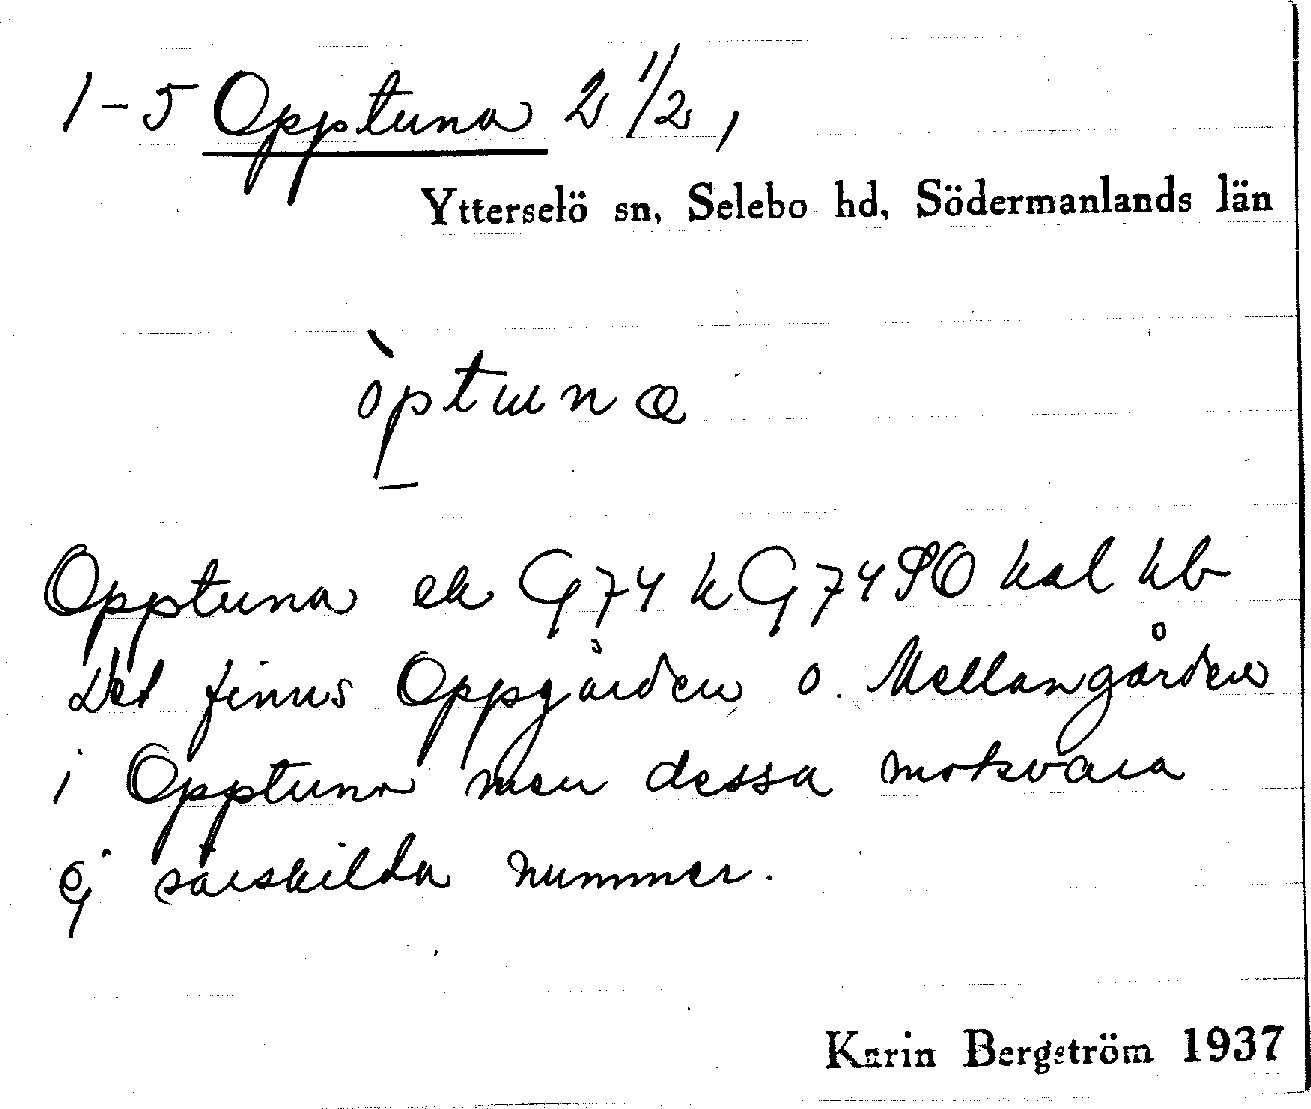 1-5 Opptuna 2 1/2,
Ytterselö sn, Selebo hd, Södermanlands län
òptuna
Opptuna ek G74 kG74SO kal kb
Det finns Oppgården o. Mellangården
i Opptuna men dessa motsvara
ej särskilda nummer.
Karin Bergström 1937